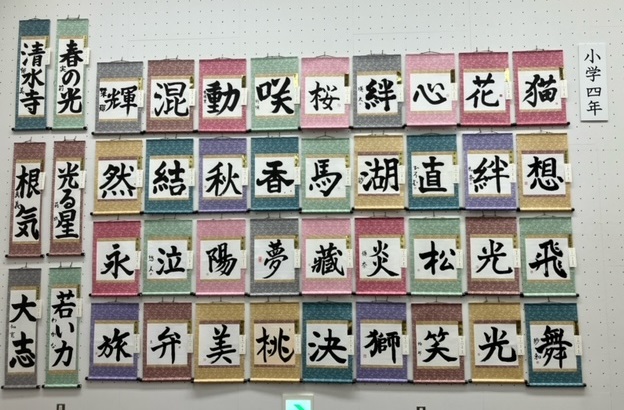 小学四年
猫
花
心
絆
桜
咲
動
混
輝
想
絆
直
湖
馬
香
秋
結
然
飛
光
松
炎
蔵
夢
陽
泣
永
舞
光
笑
獅
決
桃
美
弁
旅
春の光
清水寺
光る星
根気
若い力
大志